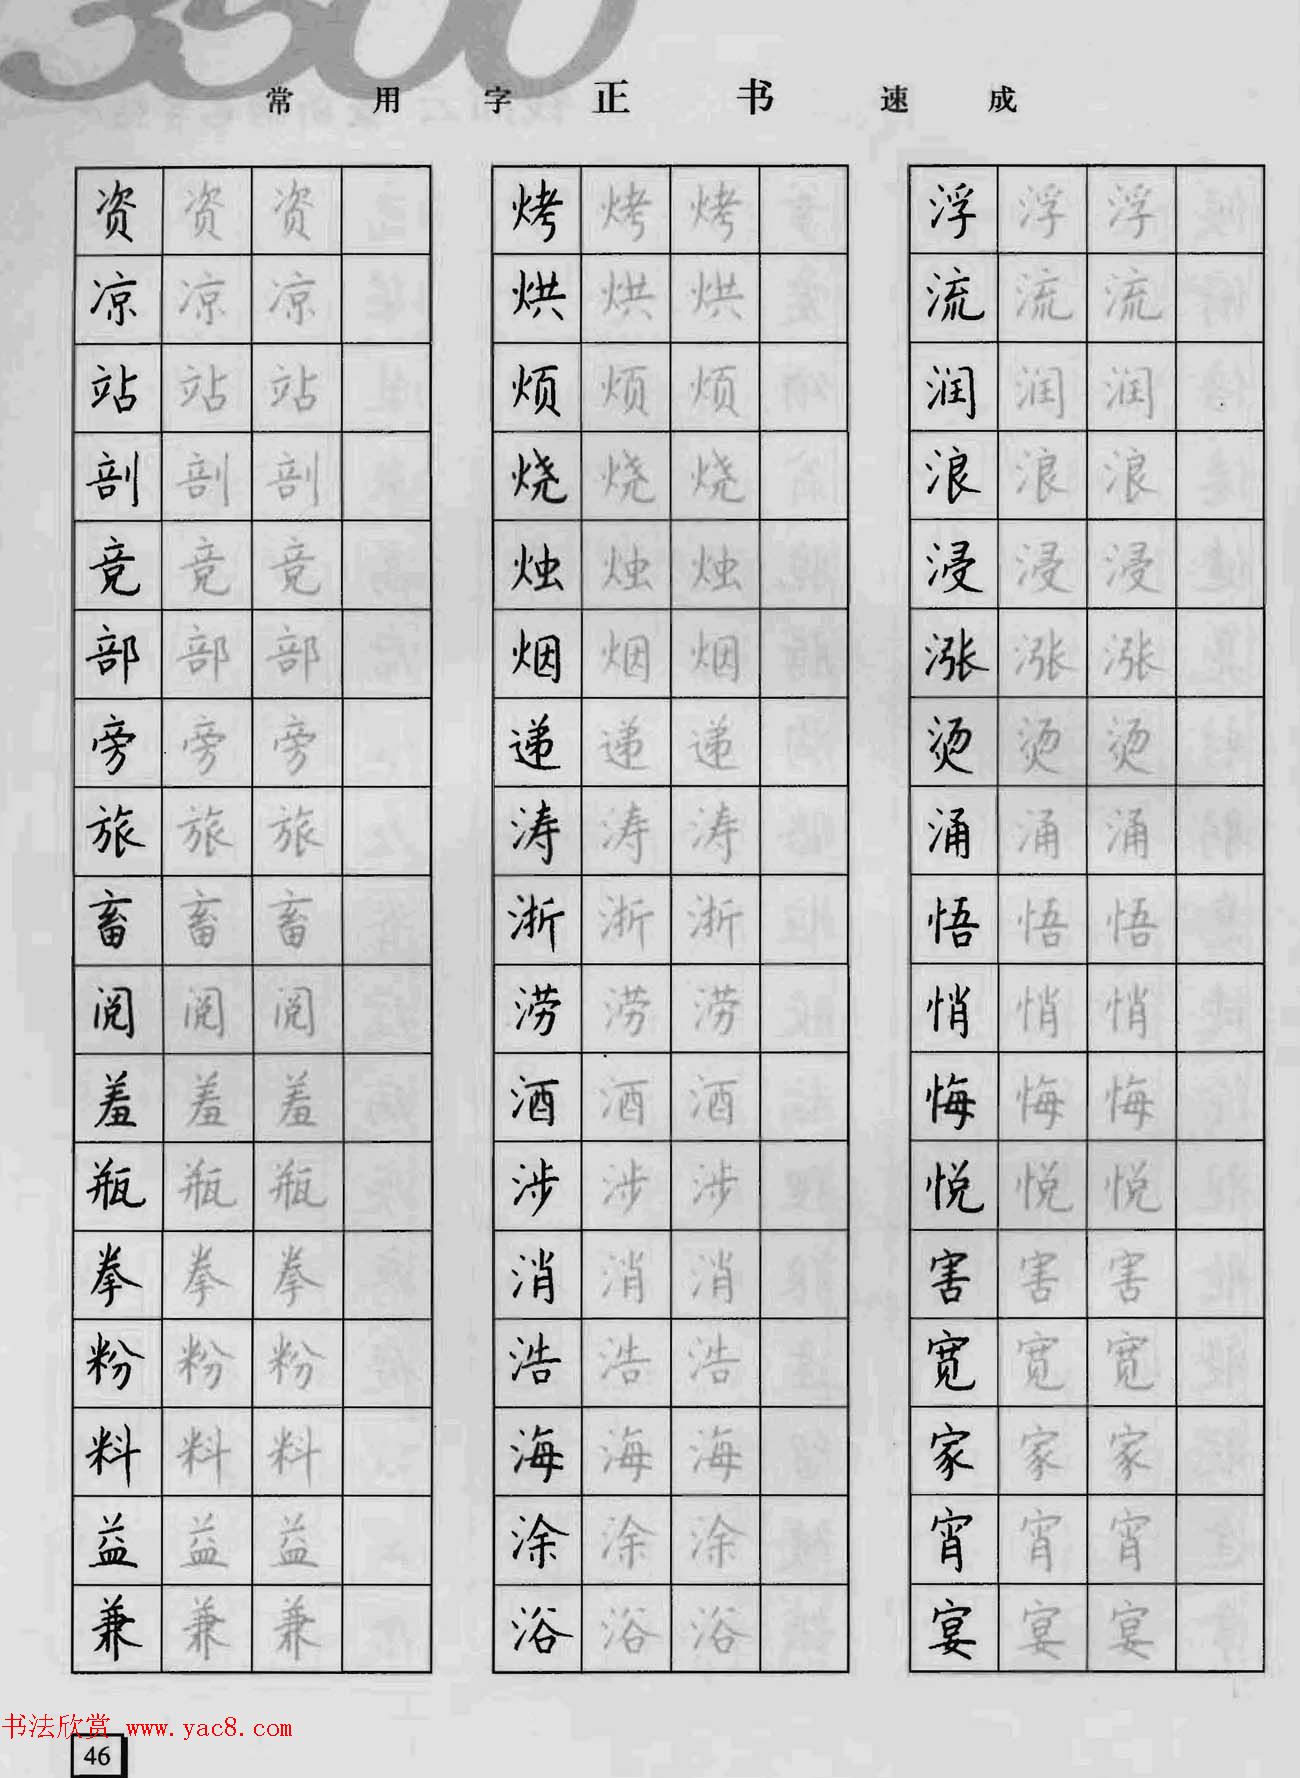 3500
常用字正书速成
资 资 资 烤 烤 烤 浮 浮 浮
凉 凉 凉 烘 烘 烘 流 流 流
站 站 站 烦 烦 烦 润 润 润
剖 剖 剖 烧 烧 烧 浪 浪 浪
竞 竞 竞 烛 烛 烛 浸 浸 浸
部 部 部 烟 烟 烟 涨 涨 涨
旁 旁 旁 递 递 递 烫 烫 烫
旅 旅 旅 涛 涛 涛 涌 涌 涌
畜 畜 畜 浙 浙 浙 悟 悟 悟
阅 阅 阅 涝 涝 涝 悄 悄 悄
羞 羞 羞 酒 酒 酒 悔 悔 悔
瓶 瓶 瓶 涉 涉 涉 悦 悦 悦
拳 拳 拳 消 消 消 害 害 害
粉 粉 粉 浩 浩 浩 宽 宽 宽
料 料 料 海 海 海 家 家 家
益 益 益 涂 涂 涂 宵 宵 宵
兼 兼 兼 浴 浴 浴 宴 宴 宴
书法欣赏 www.yac8.com
46